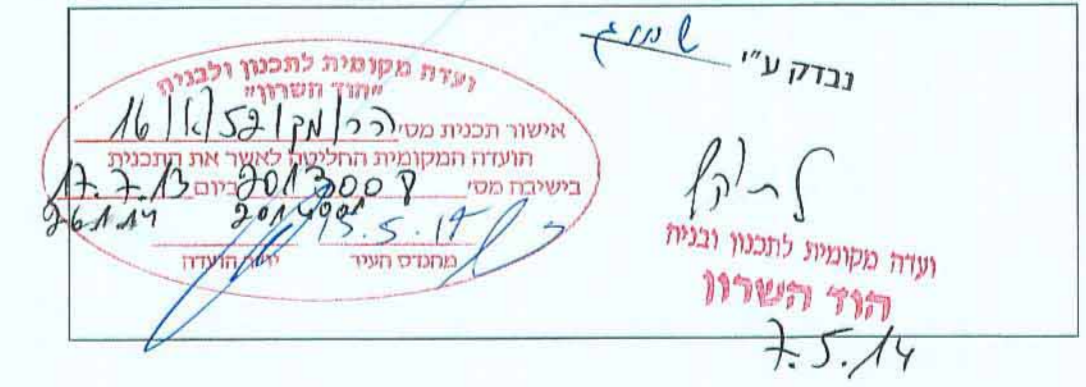 נבדק ע"י
ועדה מקומית לתכנון ולבניה
"הוד השרון"
אישור תכנית מס' הר/מק/52/א/16
הועדה המקומית החליטה לאשר את התכנית
בישיבה מס' 2013008 ביום 17.7.13
2014001 26.1.14
15.5.14
מהנדס העיר יו"ר הועדה
ועדה מקומית לתכנון ובניה
הוד השרון
7.5.14